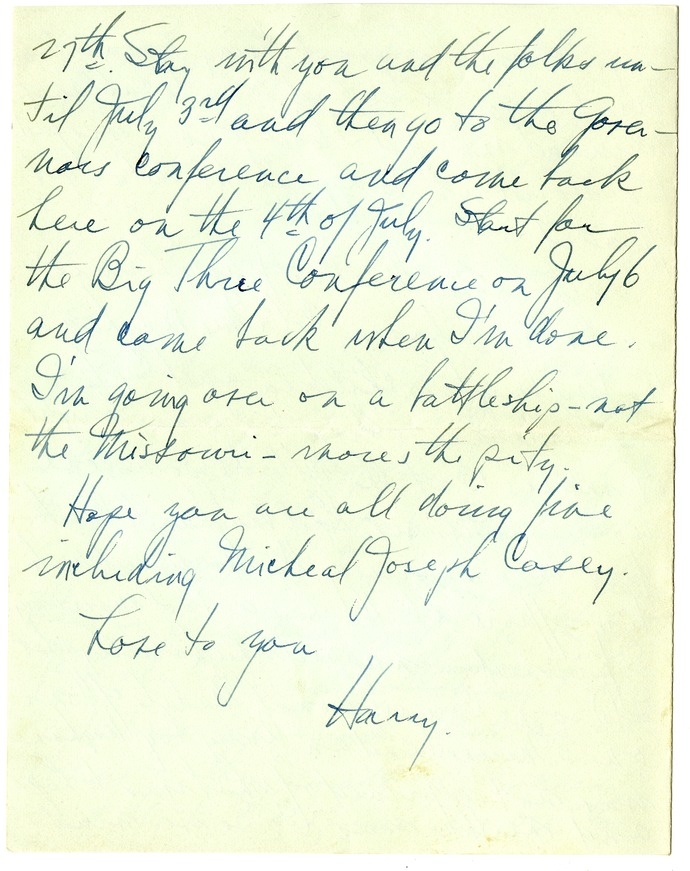 27th. Stay with you and the folks un-
til July 3rd and then go to the Gover-
nors conference and come back
here on the 4th of July. Start for
the Big Three Conference on July 6
and come back when I'm done.
I'm going over on a battleship - not
the Missouri - mores the pity.
Hope you are all doing fine
including Micheal Joseph Casey.
Love to you
Harry.